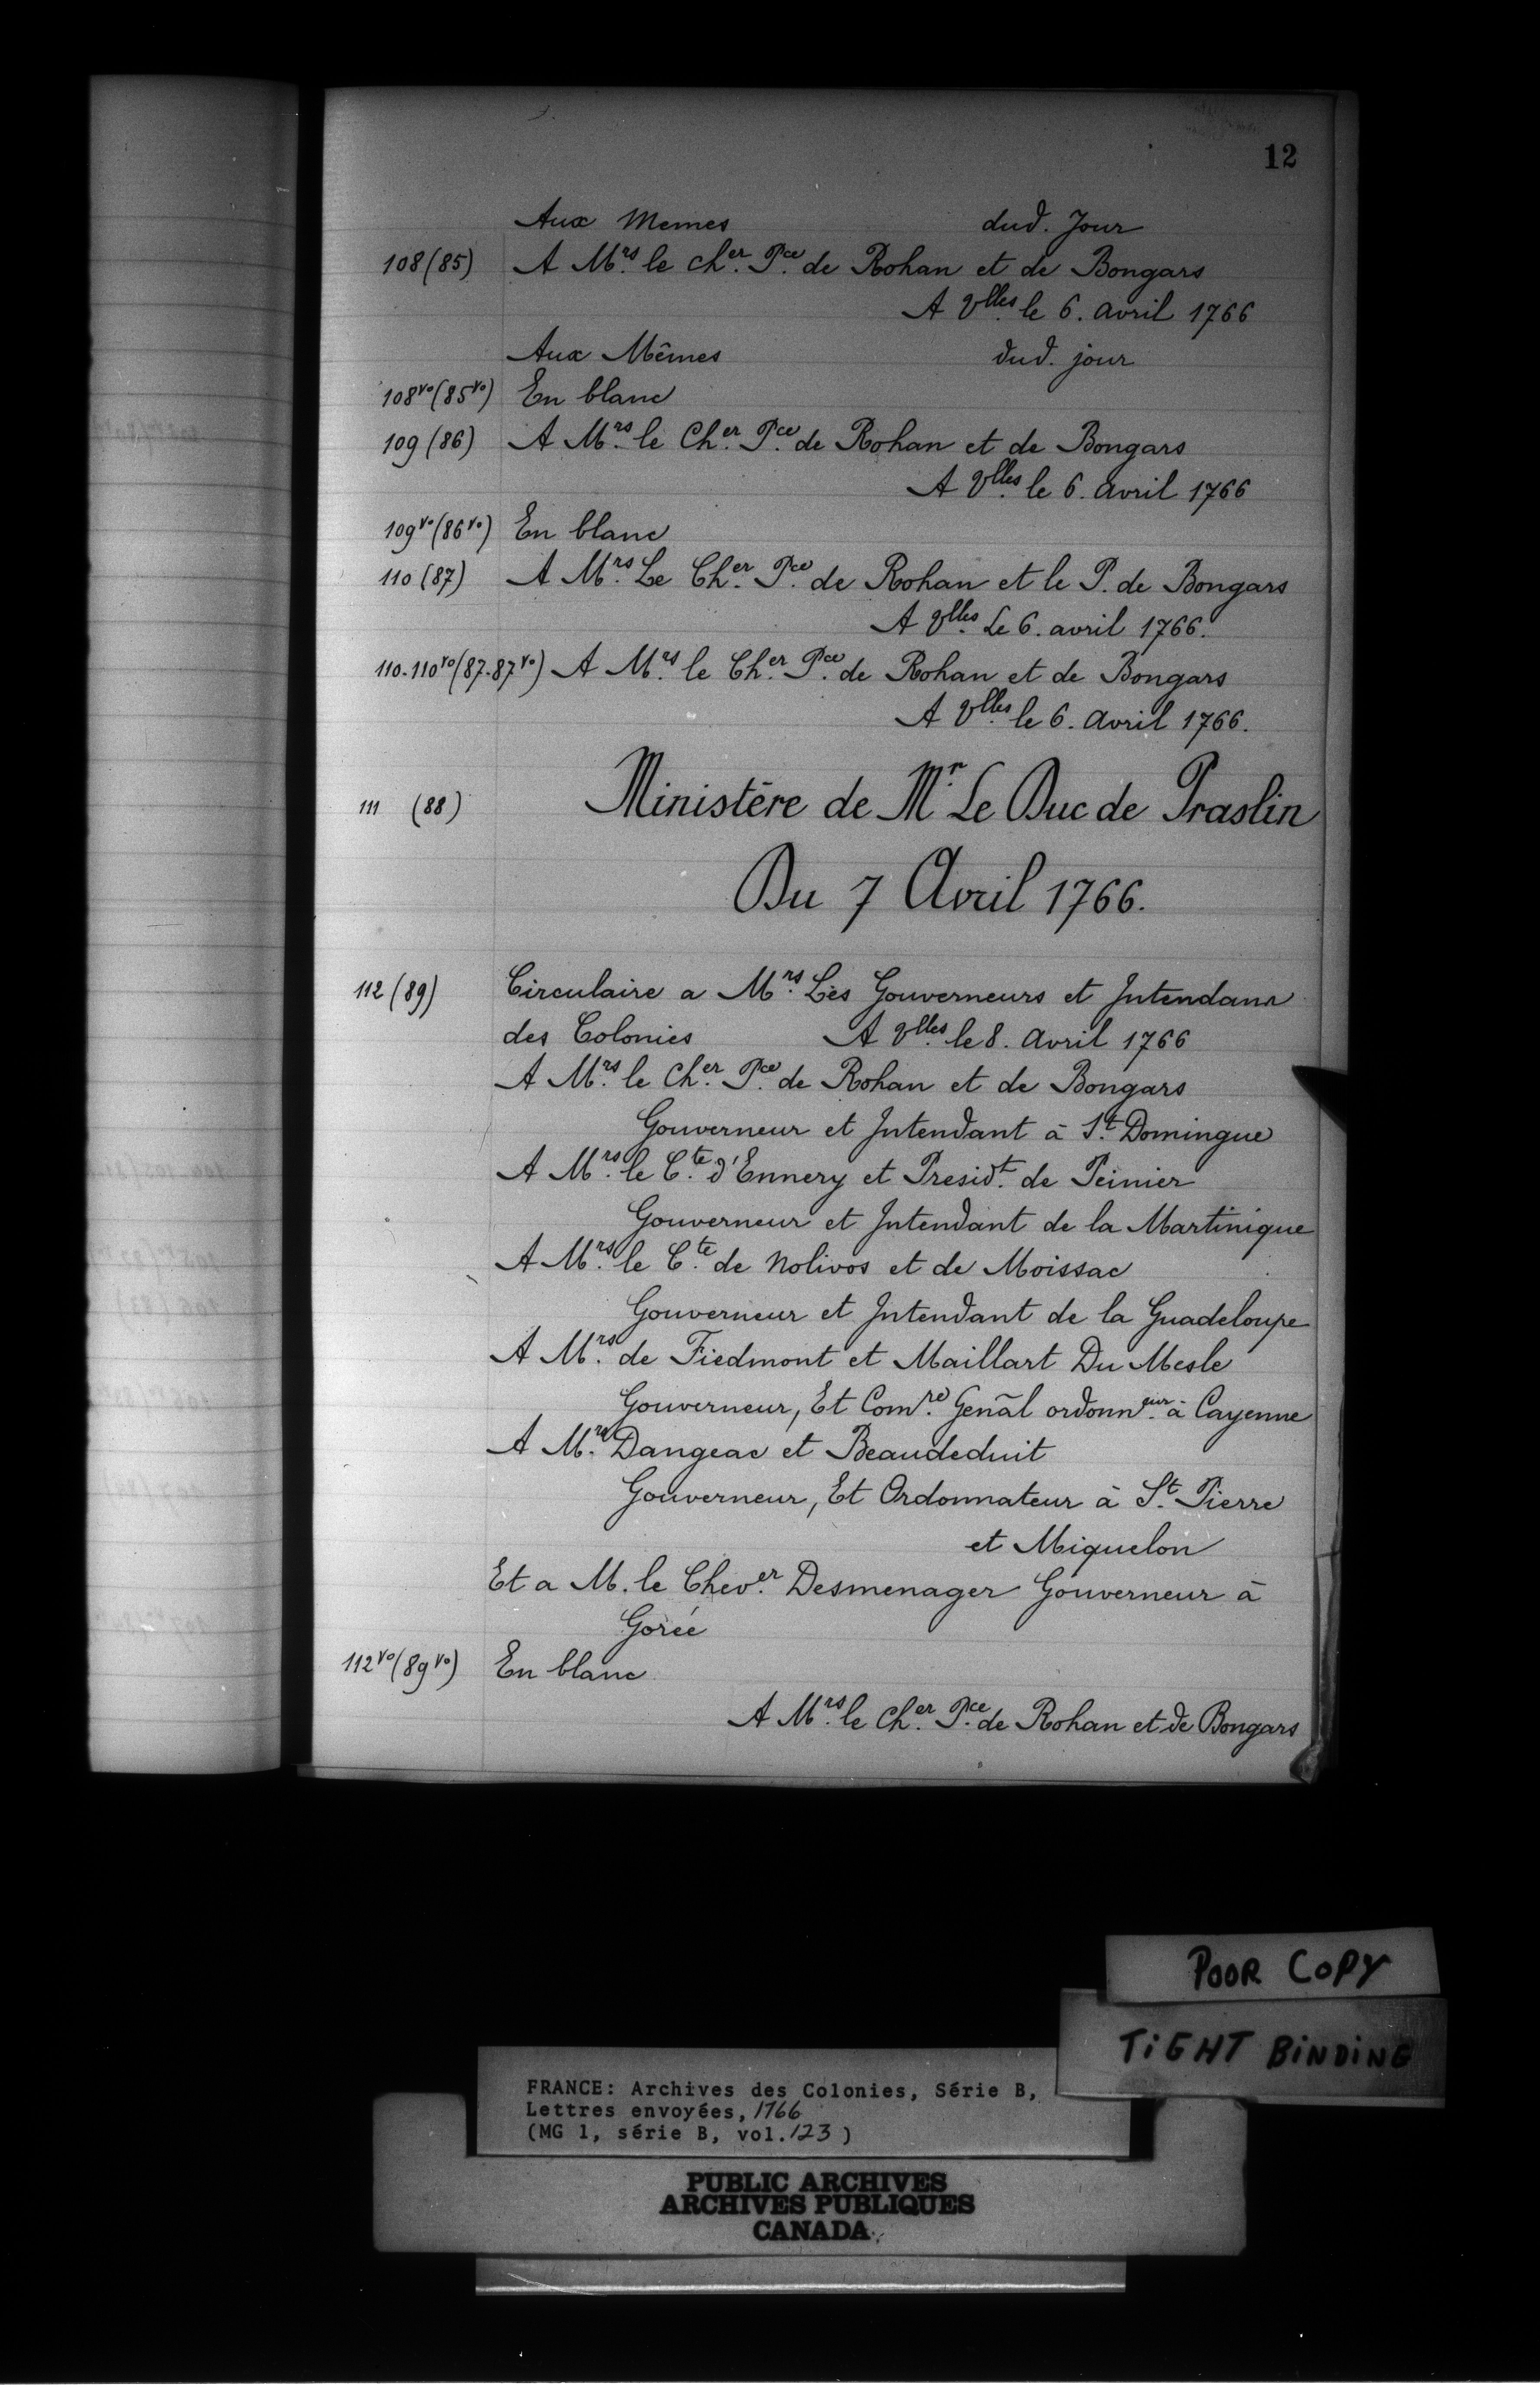 12
Aux Memes dud. Jour
108 (85) A Mrs. le cher. Pce. de Rohan et de Bongars
A Vlles. le 6. avril 1766
Aux Mêmes dud. jour
108vo (85vo) En blanc
109 (86) A Mrs. le Cher. Pce. de Rohan et de Bongars
A Vlles. le 6. avril 1766
109vo (86vo) En blanc
110 (87) A Mrs. Le Cher. Pce. de Rohan et le P. de Bongars
A Vlles. Le 6. avril 1766.
110.110vo (87.87vo) A Mrs. le Cher. Pce. de Rohan et de Bongars
A Vlles. le 6. avril 1766.
111 (88) Ministère de Mr. Le Duc de Praslin
Du 7 Avril 1766.
112 (89) Circulaire a Mrs. Les Gouverneurs et Intendans
des Colonies A Vlles. le 8. avril 1766
A Mrs. le Cher. Pce. de Rohan et de Bongars
Gouverneur et Intendant à St. Domingue
A Mrs. le Cte. d'Ennery et Presidt. de Peinier
Gouverneur et Intendant de la Martinique
A Mrs. le Cte. de Nolivos et de Moissac
Gouverneur et Intendant de la Guadeloupe
A Mrs. de Fiedmont et Maillart Du Mesle
Gouverneur, Et Comre. Genãl ordonneur. à Cayenne
A Mrs. Dangeac et Beaudeduit
Gouverneur, Et Ordonnateur à St. Pierre
et Miquelon
Et a M. le Chever. Desmenager Gouverneur à
Gorée
112vo (89vo) En blanc
A Mrs. le Cher. Pce. de Rohan et de Bongars
POOR COPY
TIGHT BINDING
FRANCE: Archives des Colonies, Série B,
Lettres envoyées, 1766
(MG 1, série B, vol. 123 )
PUBLIC ARCHIVES
ARCHIVES PUBLIQUES
CANADA